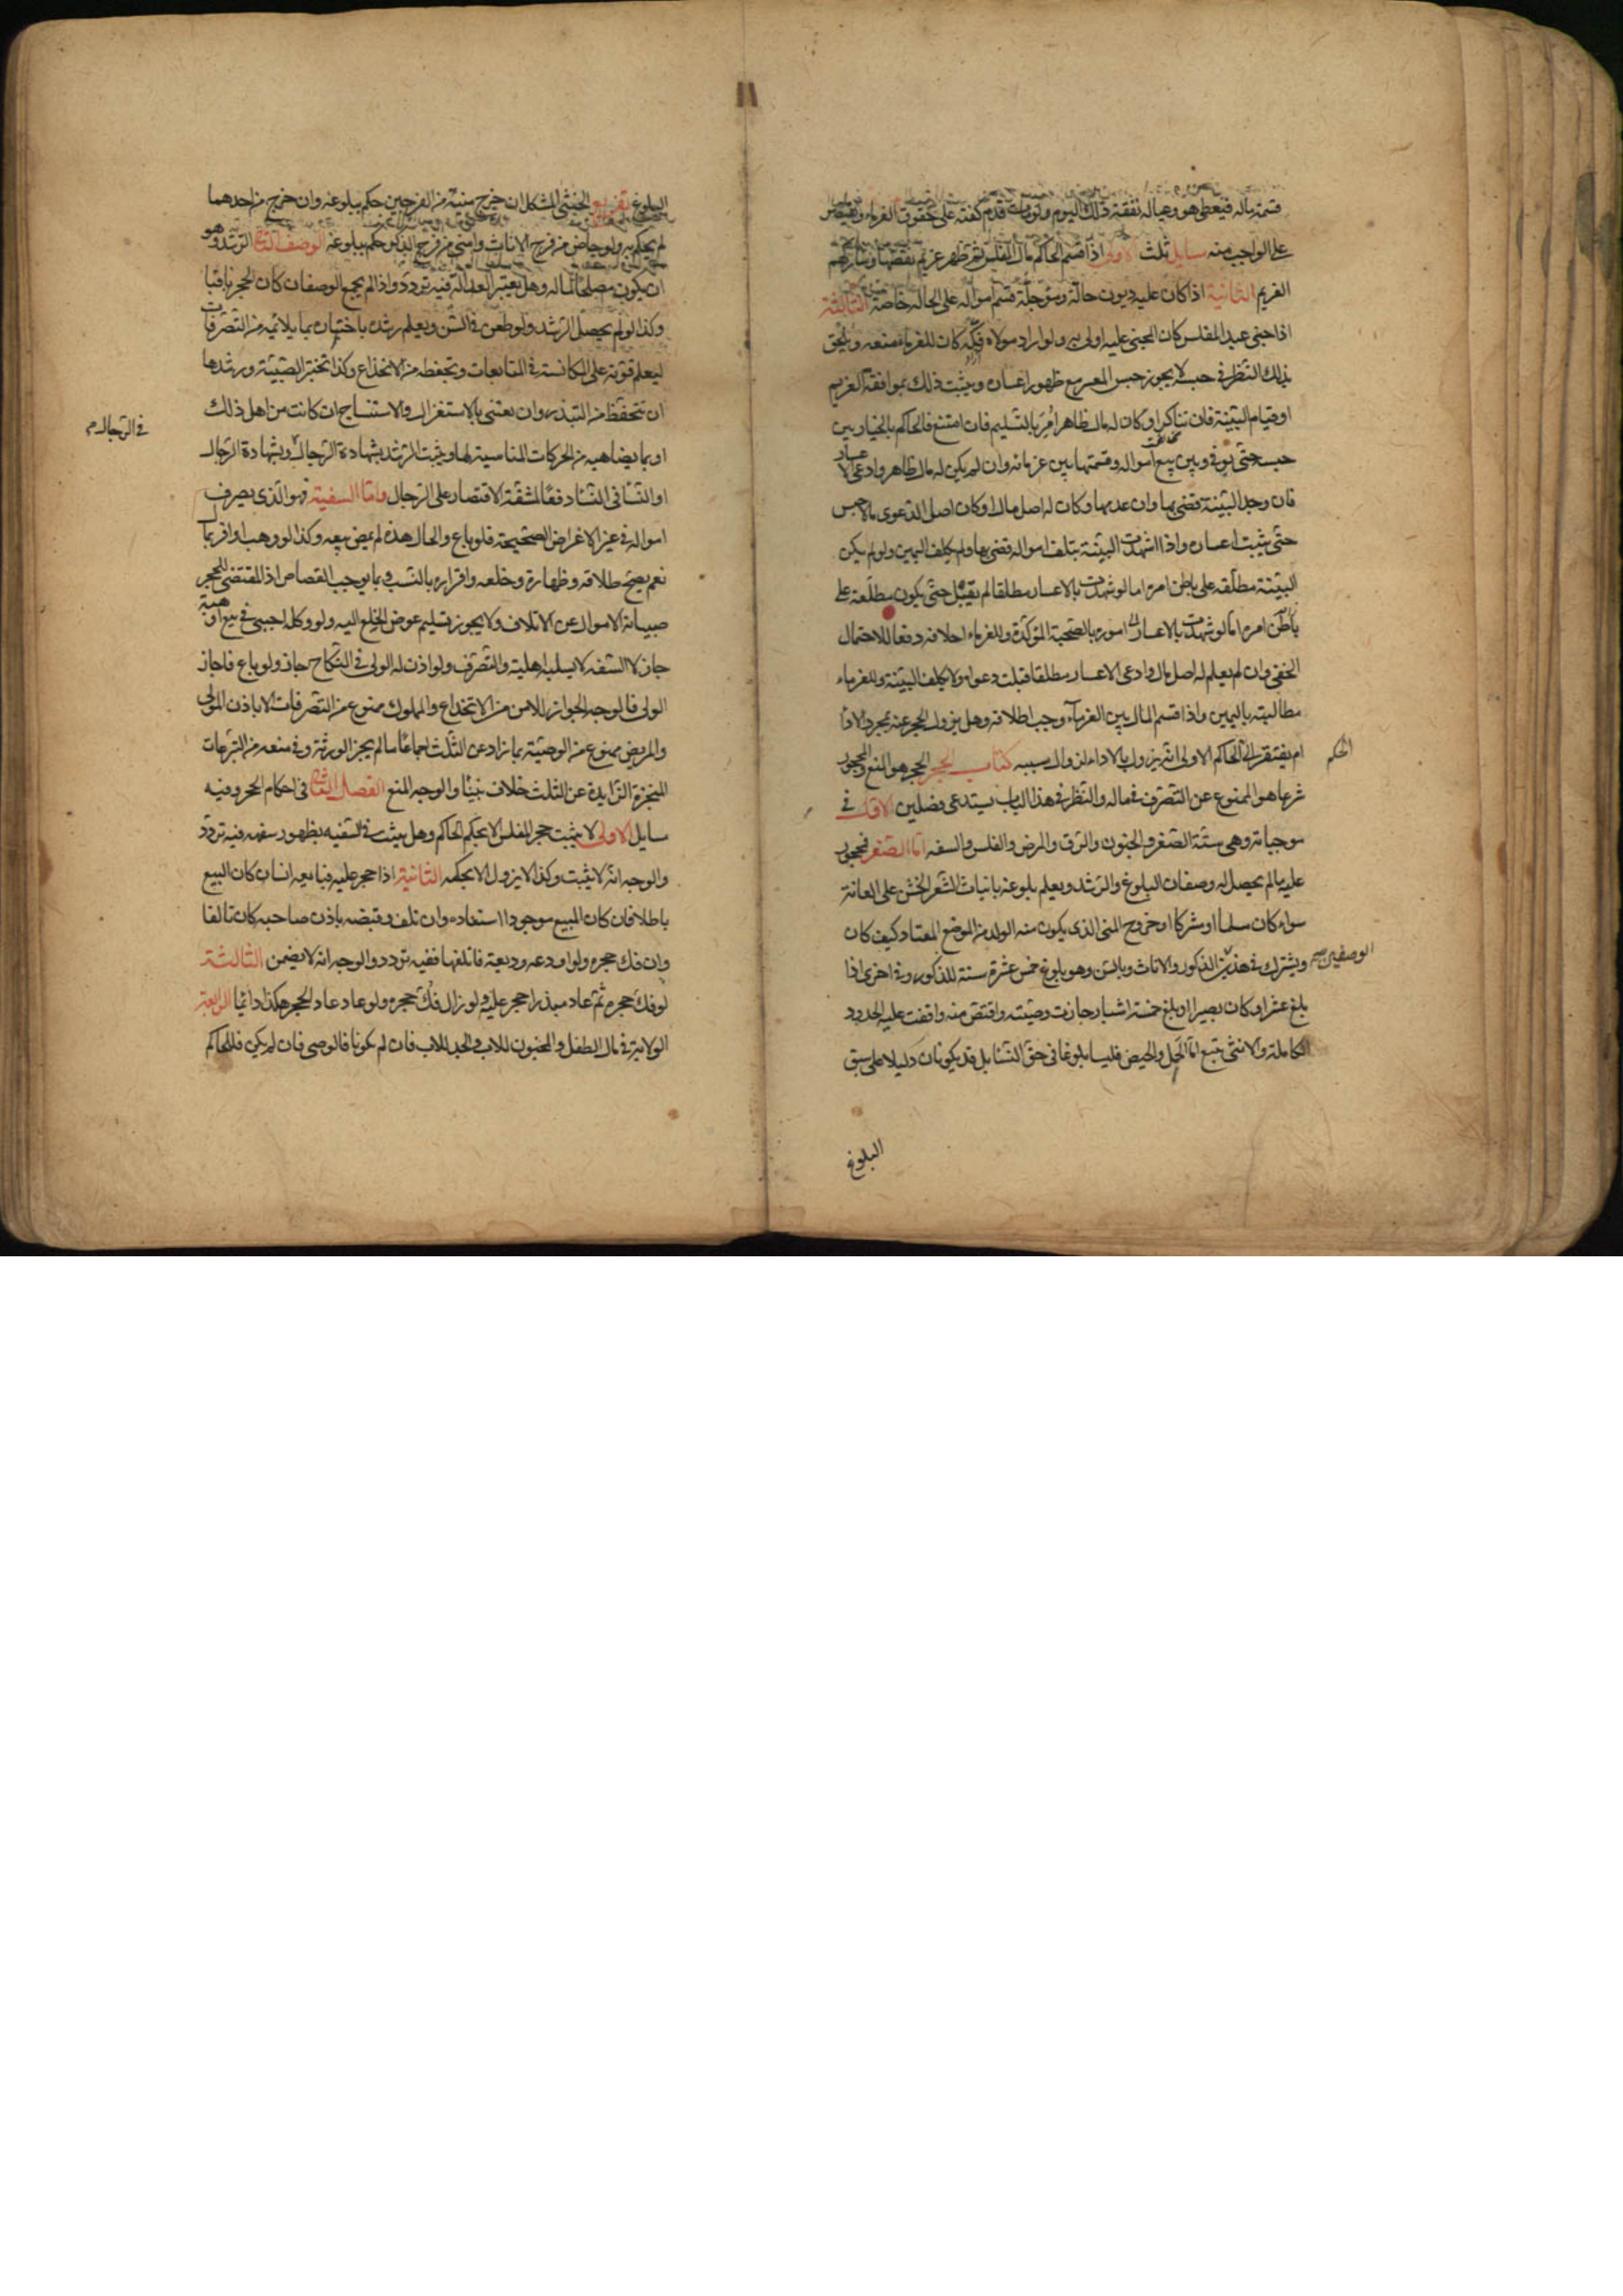 قسمة ماله فيعطى هو وعياله نفقة ذلك اليوم ولو مات قدم كفنه على حقوق الغرماء ويقتصر
على الواجب منه مسايل ثلث الاولى اذا قسم الحاكم مال المفلس ثم ظهر غريم نقضها وشاركهم
الغريم الثانية اذا كان عليه ديون حالة ومؤجلة قسم امواله على الحالة خاصة الثالثة
اذا جنى عبد المفلس كان المجنى عليه اولى به ولو اراد مولاه فكه كان للغرماء منعه ويلحق
بذلك النظر في حبسه لا يجوز حبس المعسر مع ظهور اعساره ويثبت ذلك بموافقة الغريم
او قيام البينة فان تناكرا وكان له مال ظاهر امر بالتسليم فان امتنع فالحاكم بالخيار بين
حبسه حتى يوفى وبين بيع امواله وقسمتها بين غرمائه وان لم يكن له مال ظاهر وادعى الاعسار
فان وجد البينة قضى بها وان عدمها وكان له اصل مال او كان اصل الدعوى مالا حبس
حتى يثبت اعساره واذا شهدت البينة بتلف امواله قضى بها ولم يكلف اليمين ولو لم يكن
البينة مطلقه على باطن امره اما لو شهدت بالاعسار مطلقا لم تقبل حتى يكون مطلعة على
باطن امره اما لو شهدت بالاعسار اموره بالصحبة المؤكدة وللغرماء احلافه دفعا للاحتمال
الخفى وان لم يعلم له اصل مال وادعى الاعسار مطلقا قبلت دعواه ولا يكلف البينة وللغرماء
مطالبته باليمين واذا قسم المال بين الغرماء وجب اطلاقه وهل يزول الحجر عنه بمجرد الادا
ام يفتقر الى الحاكم الاولى انه يزول بالاداء لزوال سببه كتاب الحجر الحجر هو المنع والمحجور
الحكم
شرعا هو الممنوع عن التصرف في ماله والنظر في هذا الباب يستدعى فصلين الاول في
موجباته وهى ستة الصغر والجنون والرق والمرض والفلس والسفه اما الصغر فمحجور
عليه ما لم يحصل له وصفان البلوغ والرشد ويعلم بلوغه بانبات الشعر الخشن على العانة
سواء كان مسلما او مشركا او خروج المنى الذى يكون منه الولد من الموضع المعتاد كيف كان
ويشترك في هذين الذكور والاناث وبالسن وهو بلوغ خمس عشرة سنة للذكور وفى اخرى اذا
الوصفين صح
بلغ عشرا وكان بصيرا او بلغ خمسة اشبار جازت وصيته واقتص منه واقيمت عليه الحدود
الكاملة والانثى بتسع اما الحمل والحيض فليسا بلوغا في حق النسا بل قد يكونان دليلا على سبق
البلوغ
البلوغ تفريع الخنثى المشكل ان خرج منيه من الفرجين حكم ببلوغه وان خرج من احدهما
لم يحكم به ولو حاض من فرج الاناث وامنى من فرج الذكور حكم ببلوغه الوصف الثانى الرشد وهو
ان يكون مصلحا لماله وهل يعتبر العدالة فيه تردد واذا لم يجمع الوصفان كان الحجر باقيا
وكذا لو لم يحصل الرشد ولو طعن في السن ويعلم رشده باختباره بما يلائمه من التصرفات
ليعلم قوته على المكايسة في المبايعات وتحفظه من الانخداع وكذا تختبر الصبية ورشدها
ان تتحفظ من التبذير وان تعتنى بالاستغزال والاستنساج ان كانت من اهل ذلك
او بما يضاهيه من الحركات المناسبة لها ويثبت الرشد بشهادة الرجال وبشهادة الرجال
في الرجال م
او النسا في النسا دفعا لمشقة الاقتصار على الرجال واما السفيه فهو الذى يصرف
امواله في غير الاغراض الصحيحة فلو باع والحال هذه لم يمض بيعه وكذا لو وهب او اقر بمال
نعم يصح طلاقه وظهاره وخلعه واقراره بالنسب وبما يوجب القصاص اذ المقتضى للحجر
صيانة الاموال عن الاتلاف ولا يجوز تسليم عوض الخلع اليه ولو وكله اجنبى في بيع او هبة
جاز لان السفه لا يسلبه اهلية التصرف ولو اذن له الولى في النكاح جاز ولو باع فاجاز
الولى فالوجه الجواز للامن من الانخداع والمملوك ممنوع من التصرفات الا باذن المولى
والمريض ممنوع من الوصية بما زاد عن الثلث اجماعا ما لم يجز الورثة وفى منعه من التبرعات
المنجزة الزايدة عن الثلث خلاف بيننا والوجه المنع الفصل الثانى في احكام الحجر وفيه
مسايل الاولى لا يثبت حجر المفلس الا بحكم الحاكم وهل يثبت في السفيه بظهور سفهه فيه تردد
والوجه انه لا يثبت وكذا لا يزول الا بحكمه الثانية اذا حجر عليه فبايعه انسان كان البيع
باطلا فان كان المبيع موجودا استعاده وان تلف وقبضه باذن صاحبه كان تالفا
وان فك حجره ولو اودعه وديعة فاتلفها ففيه تردد والوجه انه لا يضمن الثالثة
لو فك حجره ثم عاد مبذرا حجر عليه ولو زال فك حجره ولو عاد عاد الحجر هكذا دائما الرابعة
الولاية في مال الطفل والمجنون للاب والجد للاب فان لم يكونا فالوصى فان لم يكن فللحاكم